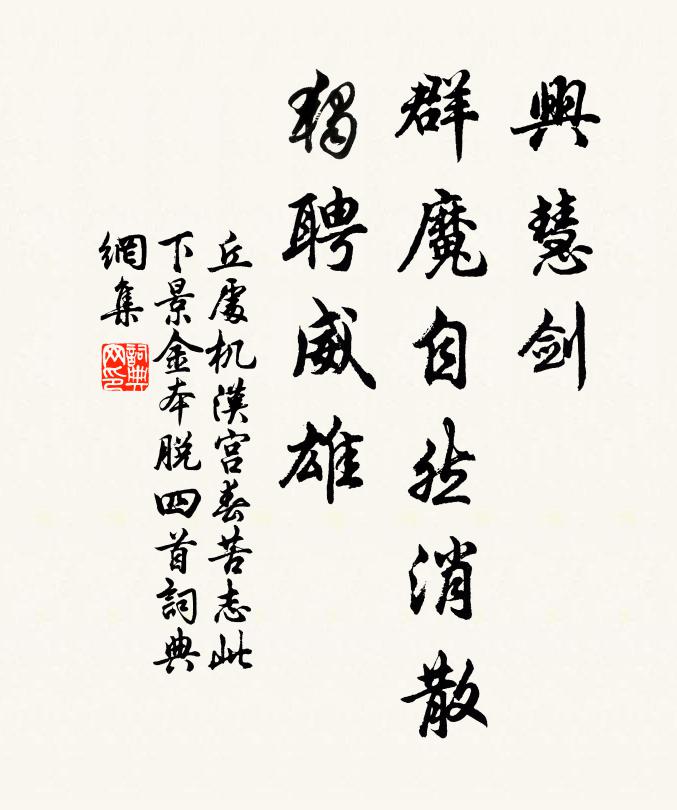 興慧剑
群魔自然消散
獨聘威雄
丘處机漢宮春苦志此
下景金本脱四首詞典
網集
詞典
网印